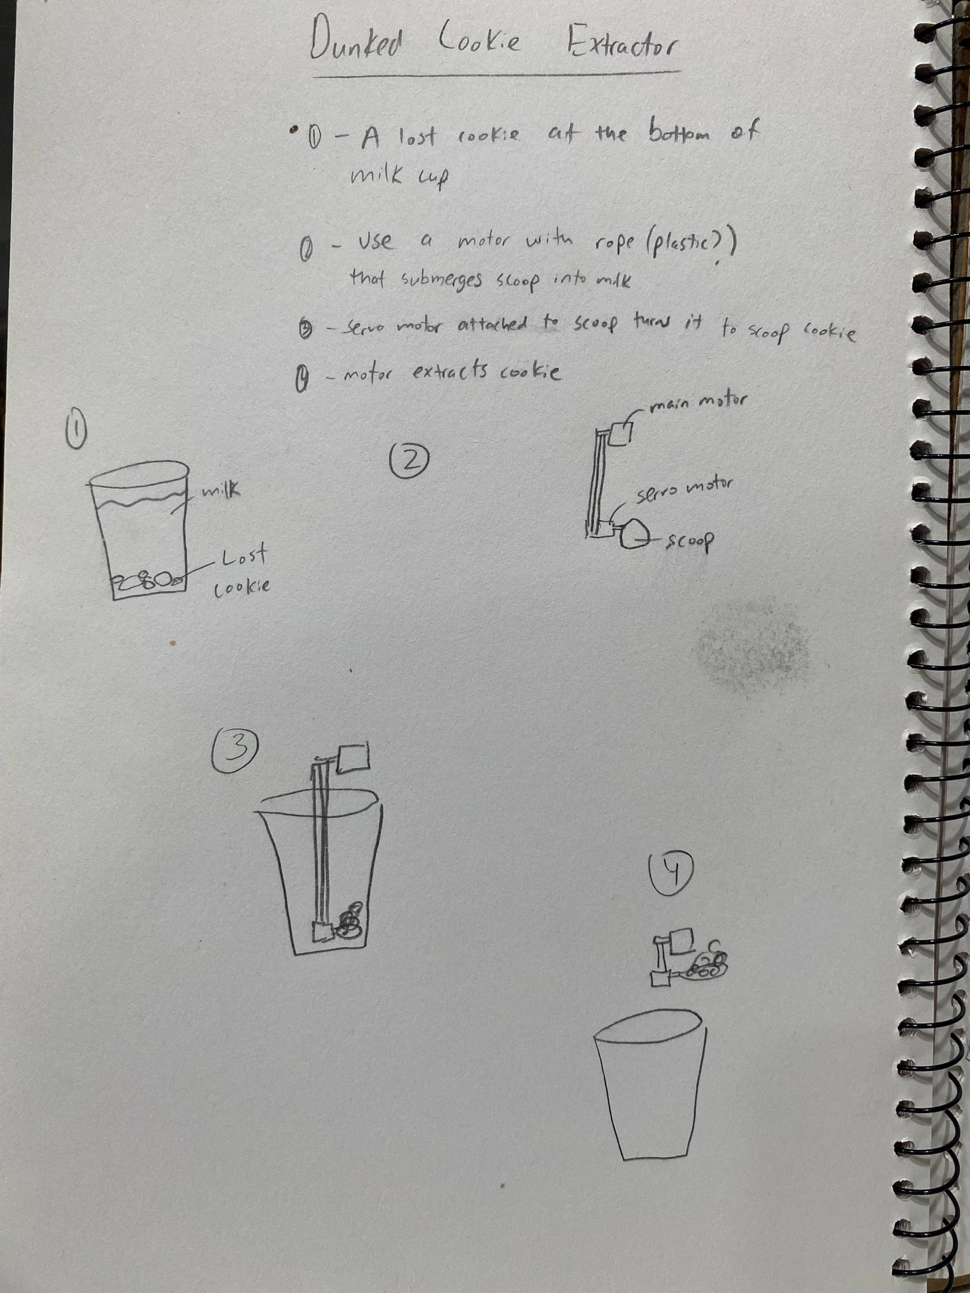 Dunked Cookie Extractor
① - A lost cookie at the bottom of
milk cup
- Use a motor with rope (plastic?)
that submerges scoop into milk
③ - servo motor attached to scoop turns it to scoop cookie
④ - motor extracts cookie
①
milk
Lost
cookie
②
main motor
servo motor
scoop
③
④